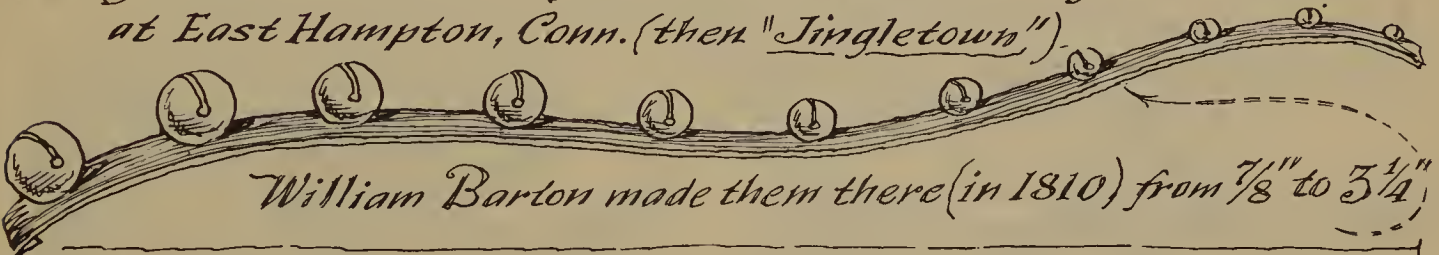 at East Hampton, Conn. (then "Jingletown").
William Barton made them there (in 1810) from 7/8" to 3 1/4"